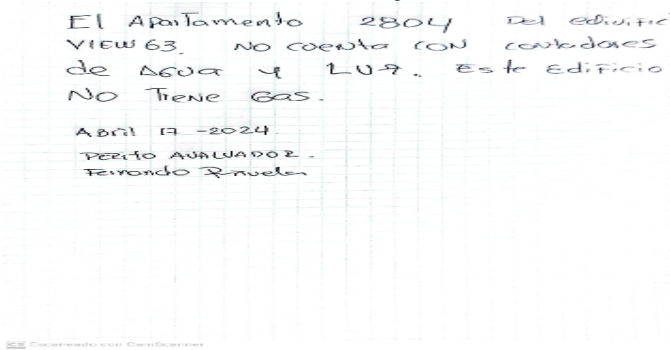 El Apartamento 2804 Del edivific
VIEW 63. NO cuenta CON contadores
de Agua y LUZ. Este Edificio
NO Tiene Gas.
Abril 17 -2024
PERITO AVALUADOR.
Fernando
CS Escaneado con CamScanner